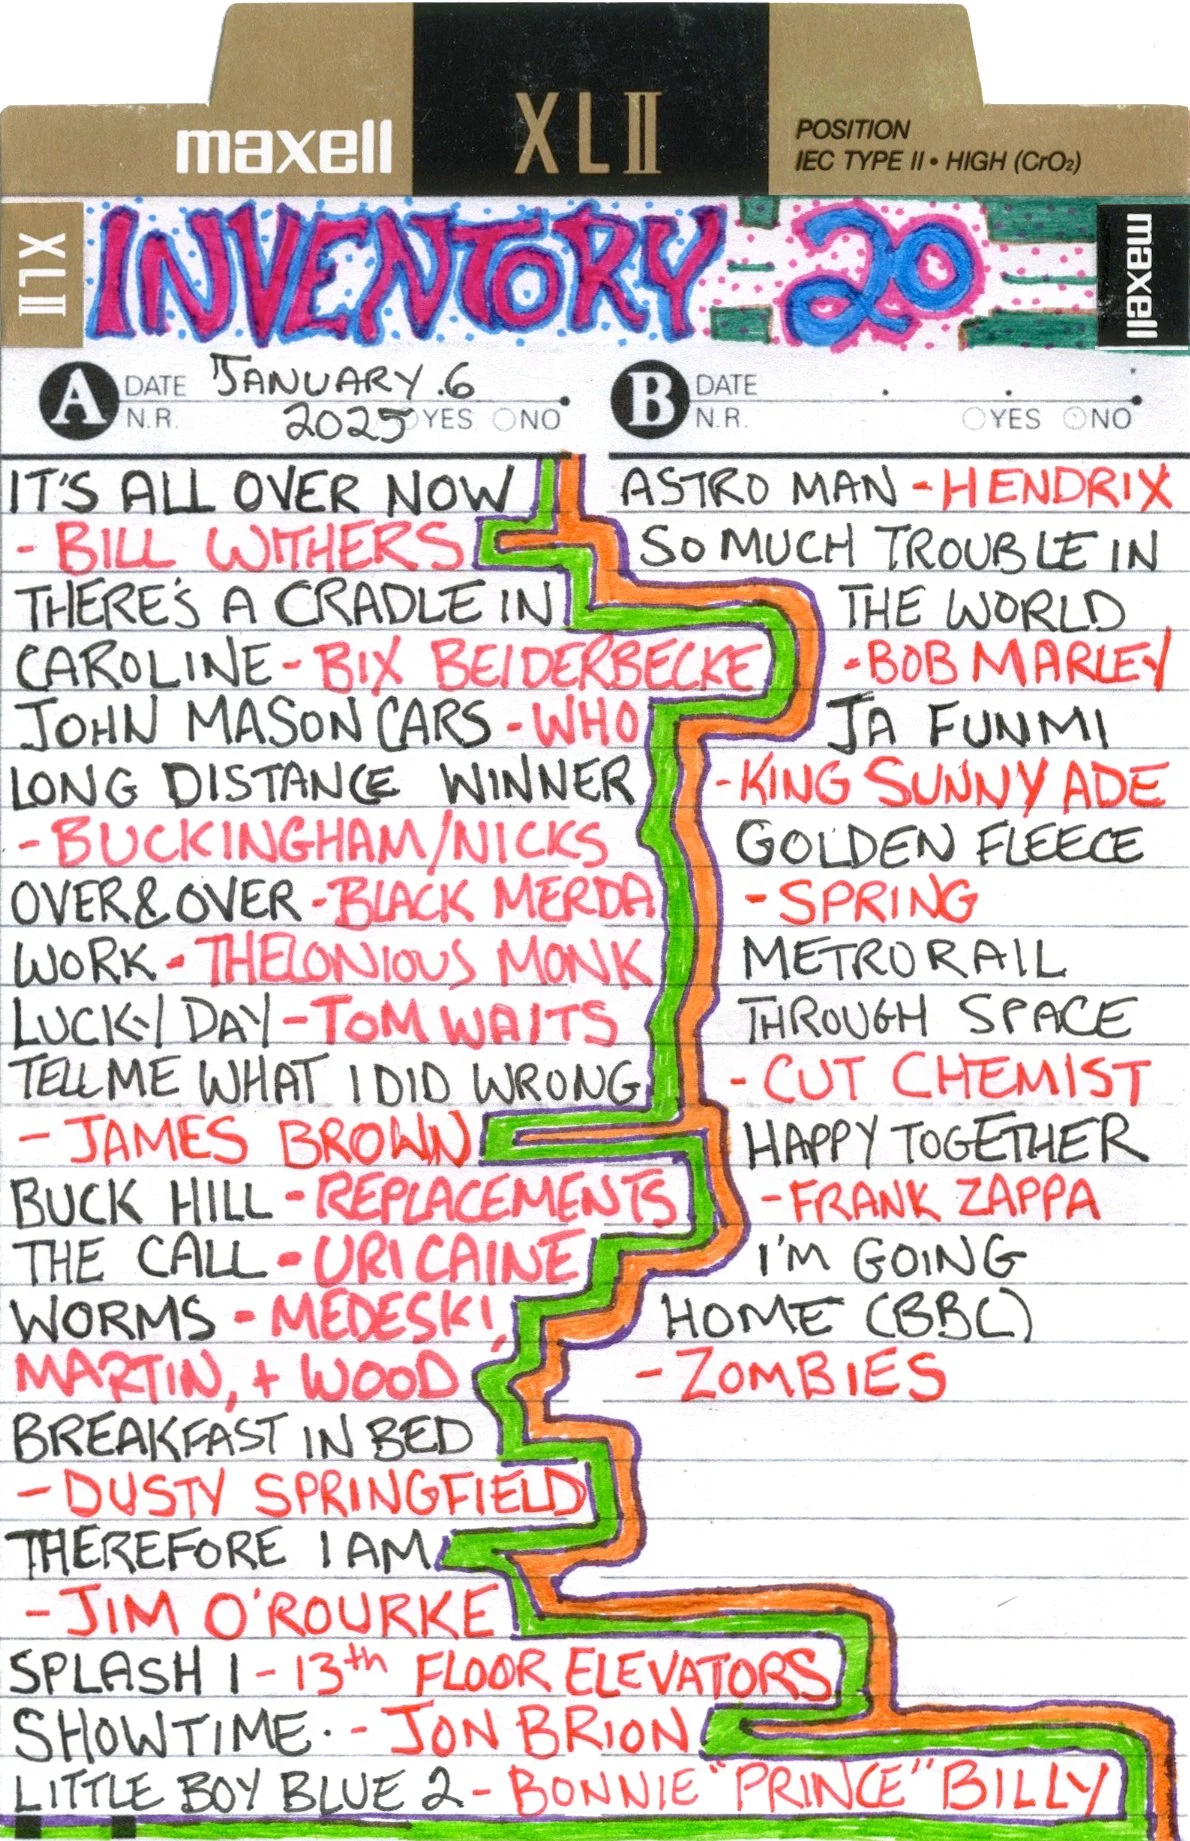 maxell XLII POSITION
IEC TYPE II • HIGH (CrO₂)
XLII INVENTORY - 20 maxell
A DATE JANUARY 6
N.R. 2025 YES NO
IT'S ALL OVER NOW
- BILL WITHERS
THERE'S A CRADLE IN
CAROLINE - BIX BEIDERBECKE
JOHN MASON CARS - WHO
LONG DISTANCE WINNER
- BUCKINGHAM/NICKS
OVER & OVER - BLACK MERDA
WORK - THELONIOUS MONK
LUCKY DAY - TOM WAITS
TELL ME WHAT I DID WRONG
- JAMES BROWN
BUCK HILL - REPLACEMENTS
THE CALL - URI CAINE
WORMS - MEDESKI,
MARTIN, + WOOD
BREAKFAST IN BED
- DUSTY SPRINGFIELD
THEREFORE I AM
- JIM O'ROURKE
SPLASH 1 - 13th FLOOR ELEVATORS
SHOWTIME - JON BRION
LITTLE BOY BLUE 2 - BONNIE "PRINCE" BILLY
B DATE
N.R. YES NO
ASTRO MAN - HENDRIX
SO MUCH TROUBLE IN
THE WORLD
- BOB MARLEY
JA FUNMI
- KING SUNNY ADE
GOLDEN FLEECE
- SPRING
METRORAIL
THROUGH SPACE
- CUT CHEMIST
HAPPY TOGETHER
- FRANK ZAPPA
I'M GOING
HOME (BBC)
- ZOMBIES